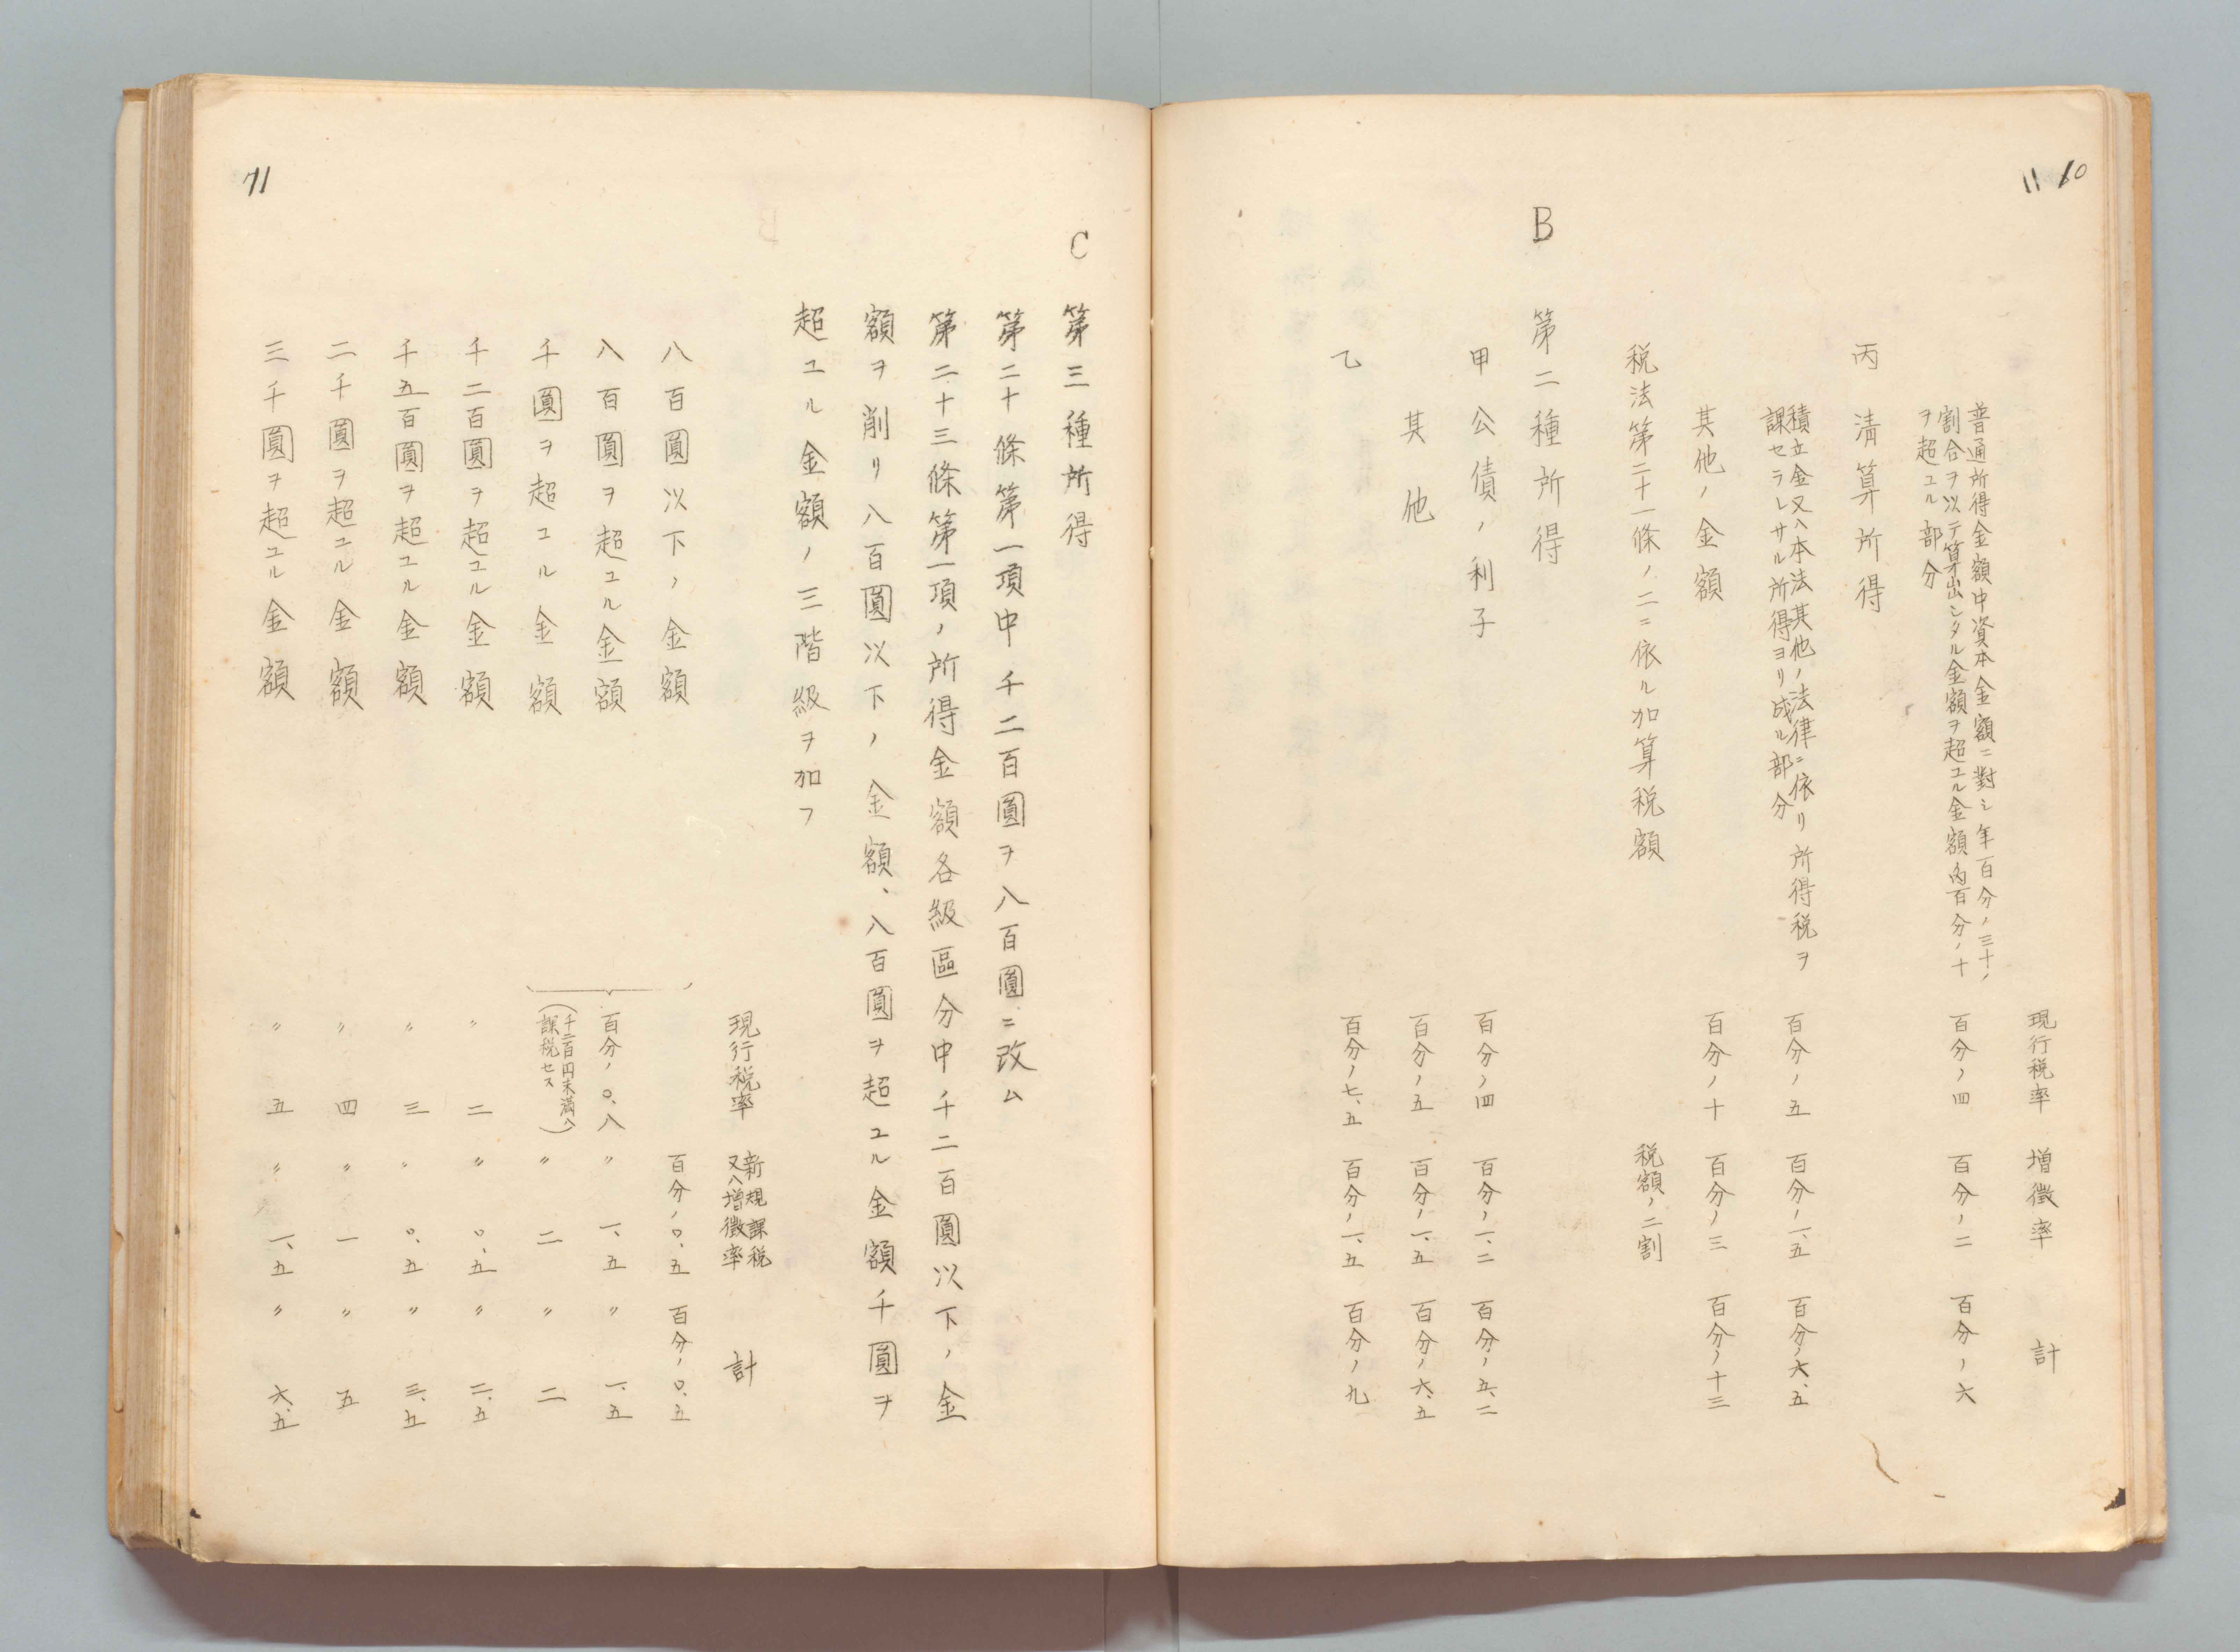 11 60
現行税率 増徴率 計
普通所得金額中資本金額ニ對シ年百分ノ三十ノ
割合ヲ以テ算出シタル金額ヲ超ユル金額内百分ノ十
ヲ超ユル部分
百分ノ四 百分ノ二 百分ノ六
丙 清算所得
積立金又ハ本法其他ノ法律ニ依リ所得税ヲ
課セラレサル所得ヨリ成ル部分
百分ノ五 百分ノ一、五 百分ノ六、五
其他ノ金額 百分ノ十 百分ノ三 百分ノ十三
税法第二十一條ノ二ニ依ル加算税額 税額ノ二割
B 第二種所得
甲 公債ノ利子 百分ノ四 百分ノ一、二 百分ノ五、二
乙 其他 百分ノ五 百分ノ一、五 百分ノ六、五
百分ノ七、五 百分ノ一、五 百分ノ九
C 第三種所得
第二十條第一項中千二百圓ヲ八百圓ニ改ム
第二十三條第一項ノ所得金額各級區分中千二百圓以下ノ金
額ヲ削リ八百圓以下ノ金額、八百圓ヲ超ユル金額千圓ヲ
超ユル金額ノ三階級ヲ加フ
現行税率 新規課税
又ハ増徴率 計
八百圓以下ノ金額 百分ノ〇、五 百分ノ〇、五
八百圓ヲ超ユル金額 百分ノ〇、八 〃 一、五 〃 一、五
千圓ヲ超ユル金額 (千二百円未満ハ
課税セス) 〃 二 〃 二
千二百圓ヲ超ユル金額 〃 二 〃 〇、五 〃 二、五
千五百圓ヲ超ユル金額 〃 三 〃 〇、五 〃 三、五
二千圓ヲ超ユル金額 〃 四 〃 一 〃 五
三千圓ヲ超ユル金額 〃 五 〃 一、五 〃 六、五
71